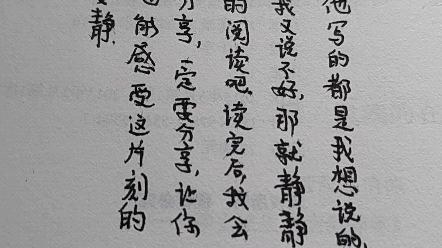 他写的都是我想说的,
我又说不好,那就静静
的阅读吧。读完后,我会
分享,一定要分享,让你
也能感受这片刻的
安静.